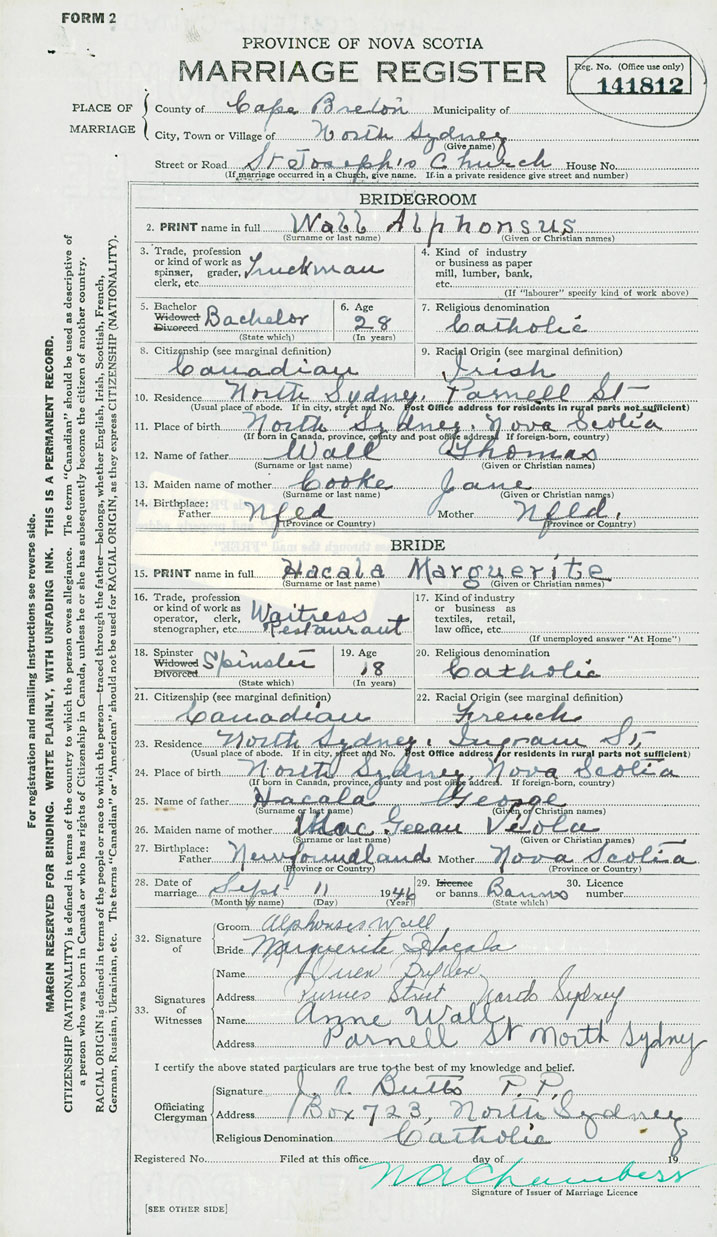 FORM 2
PROVINCE OF NOVA SCOTIA
MARRIAGE REGISTER
Reg. No. (Office use only)
141812
PLACE OF MARRIAGE
County of Cape Breton Municipality of
City, Town or Village of North Sydney
(Give name)
Street or Road St Joseph's Church House No.
(If marriage occurred in a Church, give name. If in a private residence give street and number)
BRIDEGROOM
2. PRINT name in full Wall Alphonsus
(Surname or last name) (Given or Christian names)
3. Trade, profession or kind of work as spinner, grader, clerk, etc. Truckman
4. Kind of industry or business as paper mill, lumber, bank, etc.
(If "labourer" specify kind of work above)
5. Bachelor Widowed Divorced Bachelor
(State which)
6. Age 28
(In years)
7. Religious denomination
Catholic
8. Citizenship (see marginal definition)
Canadian
9. Racial Origin (see marginal definition)
Irish
10. Residence North Sydney, Parnell St
(Usual place of abode. If in city, street and No. Post Office address for residents in rural parts not sufficient)
11. Place of birth North Sydney, Nova Scotia
(If born in Canada, province, county and post office address. If foreign-born, country)
12. Name of father Wall Thomas
(Surname or last name) (Given or Christian names)
13. Maiden name of mother Cooke Jane
(Surname or last name) (Given or Christian names)
14. Birthplace: Father Nfld Mother Nfld.
(Province or Country) (Province or Country)
BRIDE
15. PRINT name in full Hacala Marguerite
(Surname or last name) (Given or Christian names)
16. Trade, profession or kind of work as operator, clerk, stenographer, etc. Waitress Restaurant
17. Kind of industry or business as textiles, retail, law office, etc.
(If unemployed answer "At Home")
18. Spinster Widowed Divorced Spinster
(State which)
19. Age 18
(In years)
20. Religious denomination
Catholic
21. Citizenship (see marginal definition)
Canadian
22. Racial Origin (see marginal definition)
French
23. Residence North Sydney, Ingram St,
(Usual place of abode. If in city, street and No. Post Office address for residents in rural parts not sufficient)
24. Place of birth North Sydney, Nova Scotia
(If born in Canada, province, county and post office address. If foreign-born, country)
25. Name of father Hacala George
(Surname or last name) (Given or Christian names)
26. Maiden name of mother Mac
(Surname or last name) (Given or Christian names)
27. Birthplace: Father Newfoundland Mother Nova Scotia
(Province or Country) (Province or Country)
28. Date of marriage Sept 11 1946
(Month by name) (Day) (Year)
29. Licence or banns Banns
(State which)
30. Licence number
32. Signature of
Groom Alphonsus Wall
Bride Marguerite Hacala
33. Signatures of Witnesses
Name
Address Street North Sydney
Name Anne Wall
Address Parnell St North Sydney
I certify the above stated particulars are true to the best of my knowledge and belief.
Officiating Clergyman
Signature J. A. Butts P.P.
Address Box 723, North Sydney
Religious Denomination Catholic
Registered No. Filed at this office day of 19
Signature of Issuer of Marriage Licence
[SEE OTHER SIDE]
For registration and mailing instructions see reverse side.
MARGIN RESERVED FOR BINDING. WRITE PLAINLY, WITH UNFADING INK. THIS IS A PERMANENT RECORD.
CITIZENSHIP (NATIONALITY) is defined in terms of the country to which the person owes allegiance. The term "Canadian" should be used as descriptive of
a person who was born in Canada or who has rights of Citizenship in Canada, unless he or she has subsequently become the citizen of another country.
RACIAL ORIGIN is defined in terms of the people or race to which the person—traced through the father—belongs, whether English, Irish, Scottish, French,
German, Russian, Ukrainian, etc. The terms "Canadian" or "American" should not be used for RACIAL ORIGIN, as they express CITIZENSHIP (NATIONALITY).